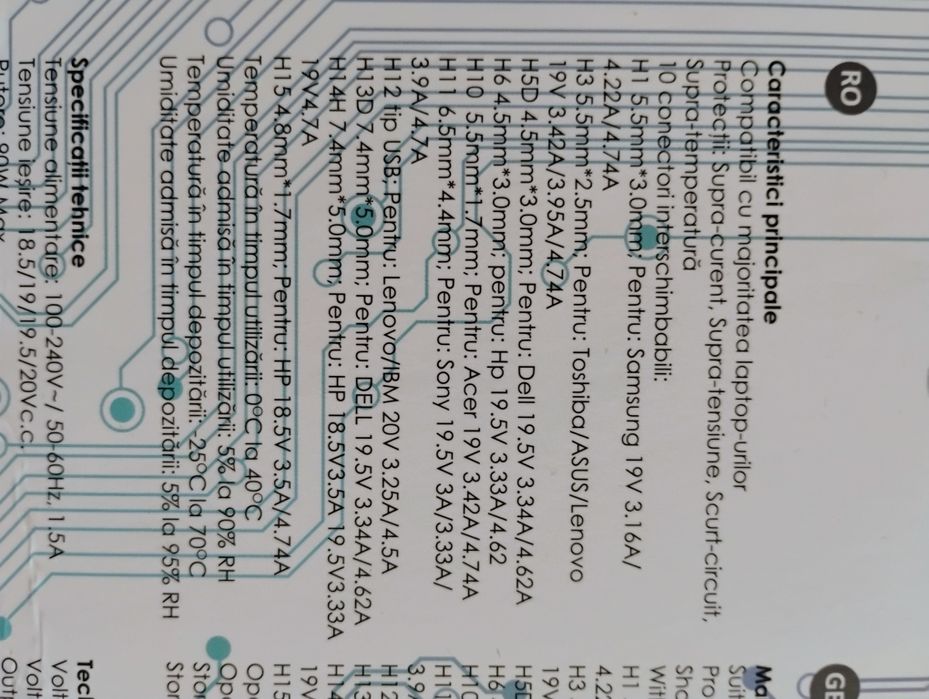 RO
Caracteristici principale
Compatibil cu majoritatea laptop-urilor
Protecții: Supra-curent, Supra-tensiune, Scurt-circuit,
Supra-temperatură
10 conectori interschimbabili:
H1 5.5mm*3.0mm; Pentru: Samsung 19V 3.16A/
4.22A/4.74A
H3 5.5mm*2.5mm; Pentru: Toshiba/ASUS/Lenovo
19V 3.42A/3.95A/4.74A
H5D 4.5mm*3.0mm; Pentru: Dell 19.5V 3.34A/4.62A
H6 4.5mm*3.0mm; pentru: Hp 19.5V 3.33A/4.62
H10 5.5mm*1.7mm; Pentru: Acer 19V 3.42A/4.74A
H11 6.5mm*4.4mm; Pentru: Sony 19.5V 3A/3.33A/
3.9A/4.7A
H12 tip USB; Pentru: Lenovo/IBM 20V 3.25A/4.5A
H13D 7.4mm*5.0mm; Pentru: DELL 19.5V 3.34A/4.62A
H14H 7.4mm*5.0mm; Pentru: HP 18.5V3.5A 19.5V3.33A
19V4.7A
H15 4.8mm*1.7mm; Pentru: HP 18.5V 3.5A/4.74A
Temperatură în timpul utilizării: 0°C la 40°C
Umiditate admisă în timpul utilizării: 5% la 90% RH
Temperatură în timpul depozitării: -25°C la 70°C
Umiditate admisă în timpul depozitării: 5% la 95% RH
Specificații tehnice
Tensiune alimentare: 100-240V~/ 50-60Hz, 1.5A
Tensiune ieșire: 18.5/19/19.5/20Vc.c.
Putere: 90W Max
H1
4.22
H3
19V
H5D
H6
H10
H11
3.9
H12
H13
H14
19V
H15